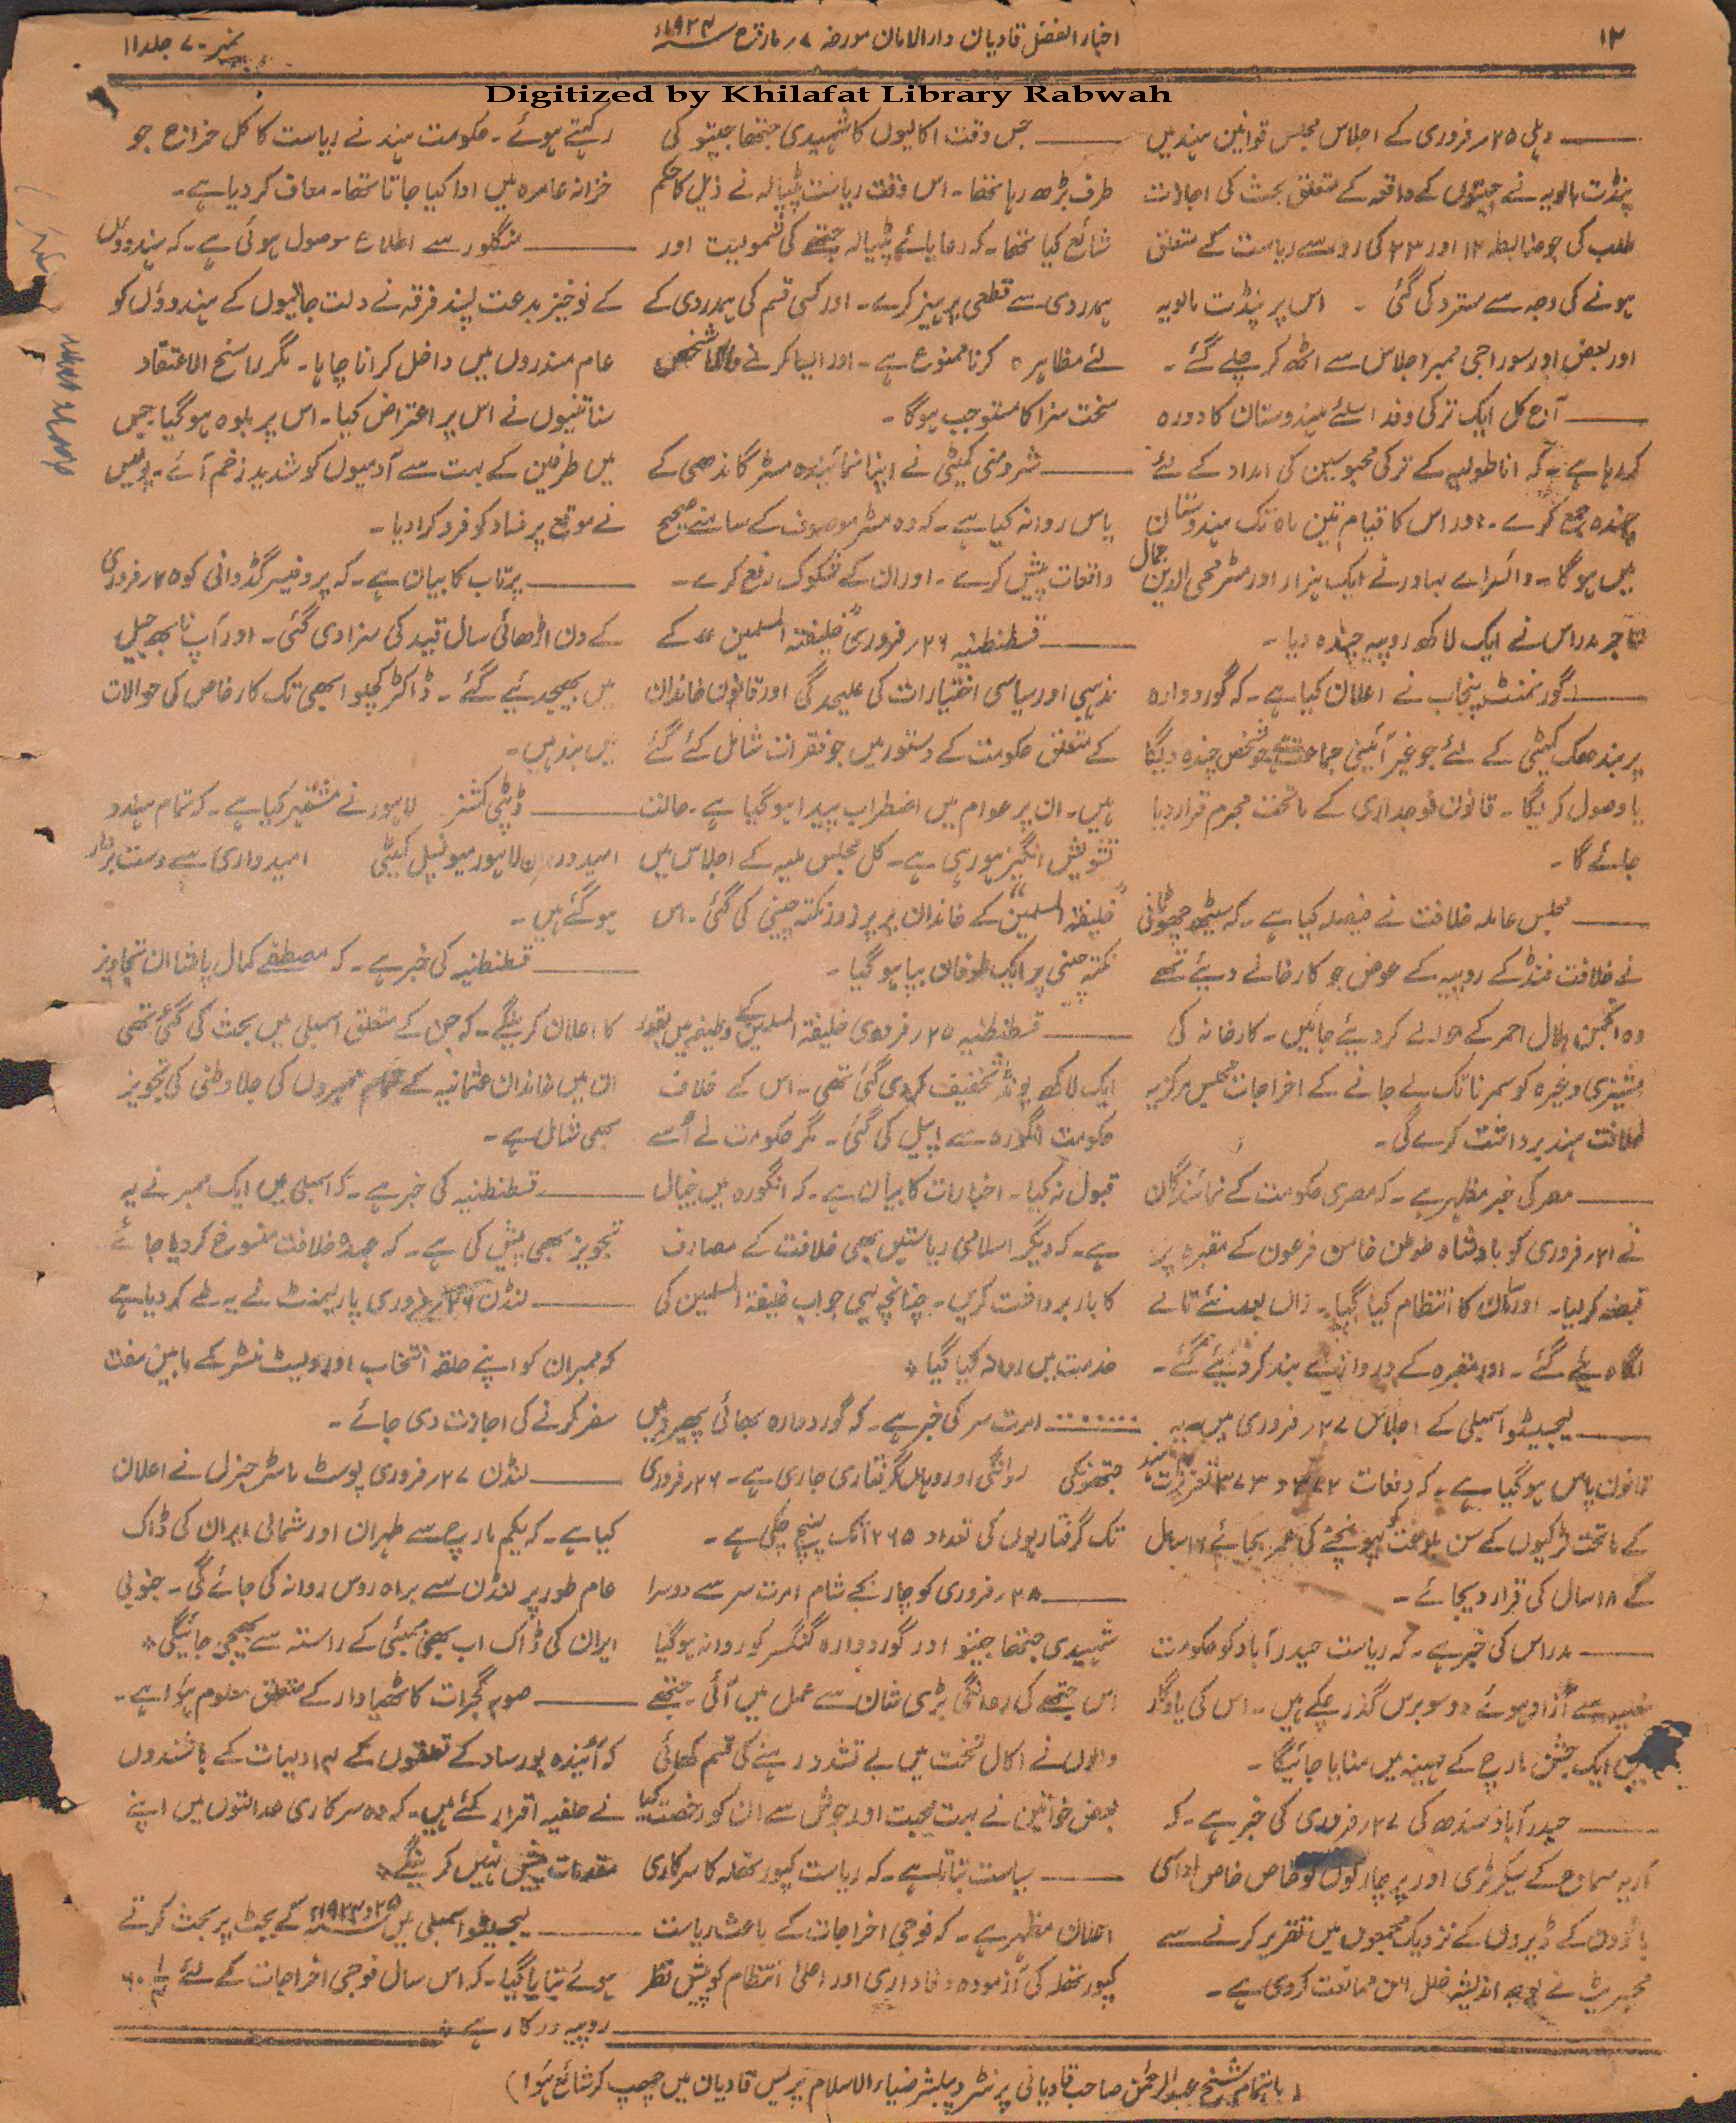 ۱۲
اخبار الفضل قادیان دارالامان مورخہ ۷ مارچ ۱۹۲۴ء
نمبر ۷۰ جلد ۱۱
Digitized by Khilafat Library Rabwah
دہلی ۲۵ فروری کے اجلاس مجلس قوانین ہند میں
پنڈت مالویہ نے جیتوں کے واقعہ کے متعلق بحث کی اجازت
طلب کی جو ضابطہ ۱۲ اور ۲۳ کی رو سے ریاست کے متعلق
ہونے کی وجہ سے مسترد کی گئی ۔ اس پر پنڈت مالویہ
اور بعض اور سوراجی ممبر اجلاس سے اٹھ کر چلے گئے ۔
آج کل ایک ترکی وفد اسلئے ہندوستان کا دورہ
کر رہا ہے ۔ کہ اناطولیہ کے ترکی محبوسین کی امداد کے لئے
چندہ جمع کرے ۔ اور اس کا قیام تین ماہ تک ہندوستان
میں ہوگا ۔ وائسرائے بہادر نے ایک ہزار اور مسٹر محی الدین جمال
تاجر مدراس نے ایک لاکھ روپیہ چندہ دیا ۔
گورنمنٹ پنجاب نے اعلان کیا ہے ۔ کہ گوردوارہ
پربندھک کمیٹی کے لئے جو غیر آئینی جماعت ہے جو شخص چندہ دیگا
یا وصول کریگا ۔ قانون فوجداری کے ماتحت مجرم قرار دیا
جائے گا ۔
مجلس عاملہ خلافت نے فیصلہ کیا ہے ۔ کہ سیٹھ چھوٹانی
نے خلافت فنڈ کے روپیہ کے عوض جو کارخانے دیئے تھے
وہ انجمن ہلال احمر کے حوالے کر دیئے جائیں ۔ کارخانہ کی
مشینری وغیرہ کو سمرنا تک لے جانے کے اخراجات مجلس مرکزیہ
خلافت ہند برداشت کرے گی ۔
مصر کی خبر مظہر ہے ۔ کہ مصری حکومت کے نمائندگان
نے ۲۱ فروری کو بادشاہ طوطن خامن فرعون کے مقبرہ پر
قبضہ کر لیا ۔ اور کا انتظام کیا گیا ۔ زاں بعد نئے تالے
لگائے گئے ۔ اور مقبرہ کے دروازے بند کر دیئے گئے ۔
لیجسلیٹو اسمبلی کے اجلاس ۲۷ فروری میں یہ
قانون پاس ہو گیا ہے ۔ کہ دفعات ۳۷۲ و ۳۷۳ تعزیرات ہند
کے ماتحت لڑکیوں کے سن بلوغت کو پہونچنے کی عمر بجائے ۱۶ سال
کے ۱۸ سال کی قرار دیجائے ۔
مدراس کی خبر ہے ۔ کہ ریاست حیدرآباد کو حکومت
مغلیہ سے آزاد ہوئے دو سو برس گذر چکے ہیں ۔ اس کی یادگار
میں ایک جشن مارچ کے مہینہ میں منایا جائیگا ۔
حیدرآباد سندھ کی ۲۷ فروری کی خبر ہے ۔ کہ
آریہ سماج کے سیکرٹری اور پرچارکوں کو خاص خاص
کے ڈیروں کے نزدیک مجمعوں میں تقریر کرنے سے
مجسٹریٹ نے بوجہ اندیشہ خلل امن ممانعت کر دی ہے ۔
جس وقت اکالیوں کا شہیدی جتھا جیتو کی
طرف بڑھ رہا تھا ۔ اس وقت ریاست پٹیالہ نے ذیل کا حکم
شائع کیا تھا ۔ کہ رعایائے پٹیالہ جتھے کی شمولیت اور
ہمدردی سے قطعی پرہیز کرے ۔ اور کسی قسم کی ہمدردی کے
لئے مظاہرہ کرنا ممنوع ہے ۔ اور ایسا کرنے والا شخص
سخت سزا کا مستوجب ہوگا ۔
شرومنی کمیٹی نے اپنا نمائیندہ مسٹر گاندھی کے
پاس روانہ کیا ہے ۔ کہ وہ مسٹر موصوف کے سامنے صحیح
واقعات پیش کرے ۔ اور ان کے شکوک رفع کرے ۔
قسطنطنیہ ۲۶ فروری "خلیفۃ المسلمین" کے
مذہبی اور سیاسی اختیارات کی علیحدگی اور قانون خاندان
کے متعلق حکومت کے دستور میں جو فقرات شامل کئے گئے
ہیں ۔ ان پر عوام میں اضطراب پیدا ہو گیا ہے ۔ حالت
تشویش انگیز ہو رہی ہے ۔ کل مجلس ملیہ کے اجلاس میں
"خلیفۃ المسلمین" کے خاندان پر پرزور نکتہ چینی کی گئی ۔ اس
نکتہ چینی پر ایک طوفان بپا ہو گیا ۔
قسطنطنیہ ۲۵ فروری خلیفۃ المسلمین کے وظیفہ میں بقدر
ایک لاکھ پونڈ تخفیف کر دی گئی تھی ۔ اس کے خلاف
حکومت انگورہ سے اپیل کی گئی ۔ مگر حکومت نے اسے
قبول نہ کیا ۔ اخبارات کا بیان ہے ۔ کہ انگورہ میں خیال
ہے ۔ کہ دیگر اسلامی ریاستیں بھی خلافت کے مصارف
کا بار برداشت کریں ۔ چنانچہ یہی جواب خلیفۃ المسلمین کی
خدمت میں روانہ کیا گیا ٭
امرت سر کی خبر ہے ۔ کہ گوردوارہ بھائی پھیرو میں
جتھوں کی روانگی اور وہاں گرفتاری جاری ہے ۔ ۲۶ فروری
تک گرفتاریوں کی تعداد ۲۶۵ تک پہنچ چکی ہے ۔
۲۸ فروری کو چار بجے شام امرت سر سے دوسرا
شہیدی جتھا جیتو اور گوردوارہ گنگسر کو روانہ ہو گیا
اس جتھے کی روانگی بڑی شان سے عمل میں آئی ۔ جتھے
والوں نے اکال تخت میں بے تشدد رہنے کی قسم کھائی
بعض خواتین نے بہت محبت اور جوش سے ان کو رخصت کیا
سیاست بتاتا ہے ۔ کہ ریاست کپورتھلہ کا سرکاری
اعلان مظہر ہے ۔ کہ فوجی اخراجات کے باعث ریاست
کپورتھلہ کی آزمودہ وفاداری اور اعلیٰ انتظام کو پیش نظر
رکھتے ہوئے ۔ حکومت ہند نے ریاست کا کل خراج جو
خزانہ عامرہ میں ادا کیا جاتا تھا ۔ معاف کر دیا ہے ۔
منگلور سے اطلاع موصول ہوئی ہے ۔ کہ ہندوؤں
کے نوخیز بدعت پسند فرقہ نے دلت جاتیوں کے ہندوؤں کو
عام مندروں میں داخل کرانا چاہا ۔ مگر راسخ الاعتقاد
سناتنیوں نے اس پر اعتراض کیا ۔ اس پر بلوہ ہو گیا جس
میں طرفین کے بہت سے آدمیوں کو شدید زخم آئے ۔ پولیس
نے موقع پر فساد کو فرو کرا دیا ۔
پرتاب کا بیان ہے ۔ کہ پروفیسر گڈوانی کو ۲۵ فروری
کے دن اڑھائی سال قید کی سزا دی گئی ۔ اور آپ نابھہ جیل
میں بھیجدئیے گئے ۔ ڈاکٹر کچلو ابھی تک کارخاص کی حوالات
میں بند ہیں ۔
ڈپٹی کمشنر لاہور نے مشتہر کیا ہے ۔ کہ تمام ہندو
امیدواران لاہور میونسپل کمیٹی امیدواری سے دست بردار
ہو گئے ہیں ۔
قسطنطنیہ کی خبر ہے ۔ کہ مصطفےٰ کمال پاشا ان تجاویز
کا اعلان کرینگے ۔ کہ جن کے متعلق اسمبلی میں بحث کی گئی تھی
ان میں خاندان عثمانیہ کے تمام ممبروں کی جلاوطنی کی تجویز
بھی شامل ہے ۔
قسطنطنیہ کی خبر ہے ۔ کہ اسمبلی میں ایک ممبر نے یہ
تجویز بھی پیش کی ہے ۔ کہ عہدہ خلافت منسوخ کر دیا جائے
لنڈن ۲۶ فروری پارلیمنٹ نے یہ طے کر دیا ہے
کہ ممبران کو اپنے حلقہ انتخاب اور ویسٹ منسٹر کے مابین مفت
سفر کرنے کی اجازت دی جائے ۔
لنڈن ۲۷ فروری پوسٹ ماسٹر جنرل نے اعلان
کیا ہے ۔ کہ یکم مارچ سے طہران اور شمالی ایران کی ڈاک
عام طور پر لنڈن سے براہ روس روانہ کی جائے گی ۔ جنوبی
ایران کی ڈاک اب بھی بمبئی کے راستہ سے بھیجی جائیگی ٭
صوبہ گجرات کاٹھیاوار کے متعلق معلوم ہوا ہے ۔
کہ آئیندہ بورساد کے تعلقوں کے ۱۴ دیہات کے باشندوں
نے حلفیہ اقرار کئے ہیں ۔ کہ وہ سرکاری عدالتوں میں اپنے
مقدمات پیش نہیں کرینگے ٭
لیجسلیٹو اسمبلی میں کے بجٹ پر بحث کرتے
ہوئے بتایا گیا ۔ کہ اس سال فوجی اخراجات کے لئے
روپیہ درکار ہے ٭
(باہتمام شیخ عبدالرحمٰن صاحب قادیانی پرنٹر و پبلشر ضیاء الاسلام پریس قادیان میں چھپ کر شائع ہوا)